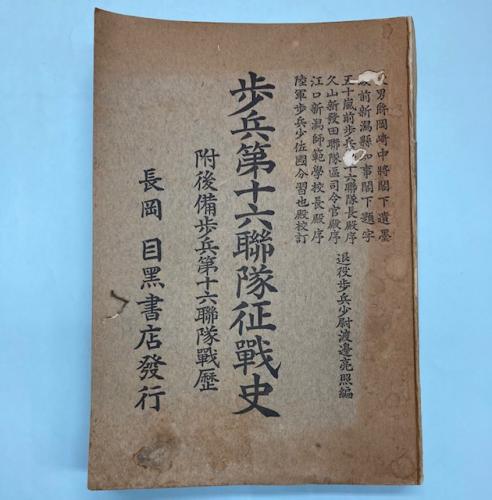 男爵岡崎中將閣下遺墨
前新潟縣知事閣下題字
五十嵐前歩兵十六聯隊長殿序
久山新發田聯隊區司令官殿序
江口新潟師範學校長殿序
陸軍歩兵少佐國分習也殿校訂
退役歩兵少尉渡邊亮照編
歩兵第十六聯隊征戰史
附後備歩兵第十六聯隊戰歷
長岡 目黑書店發行